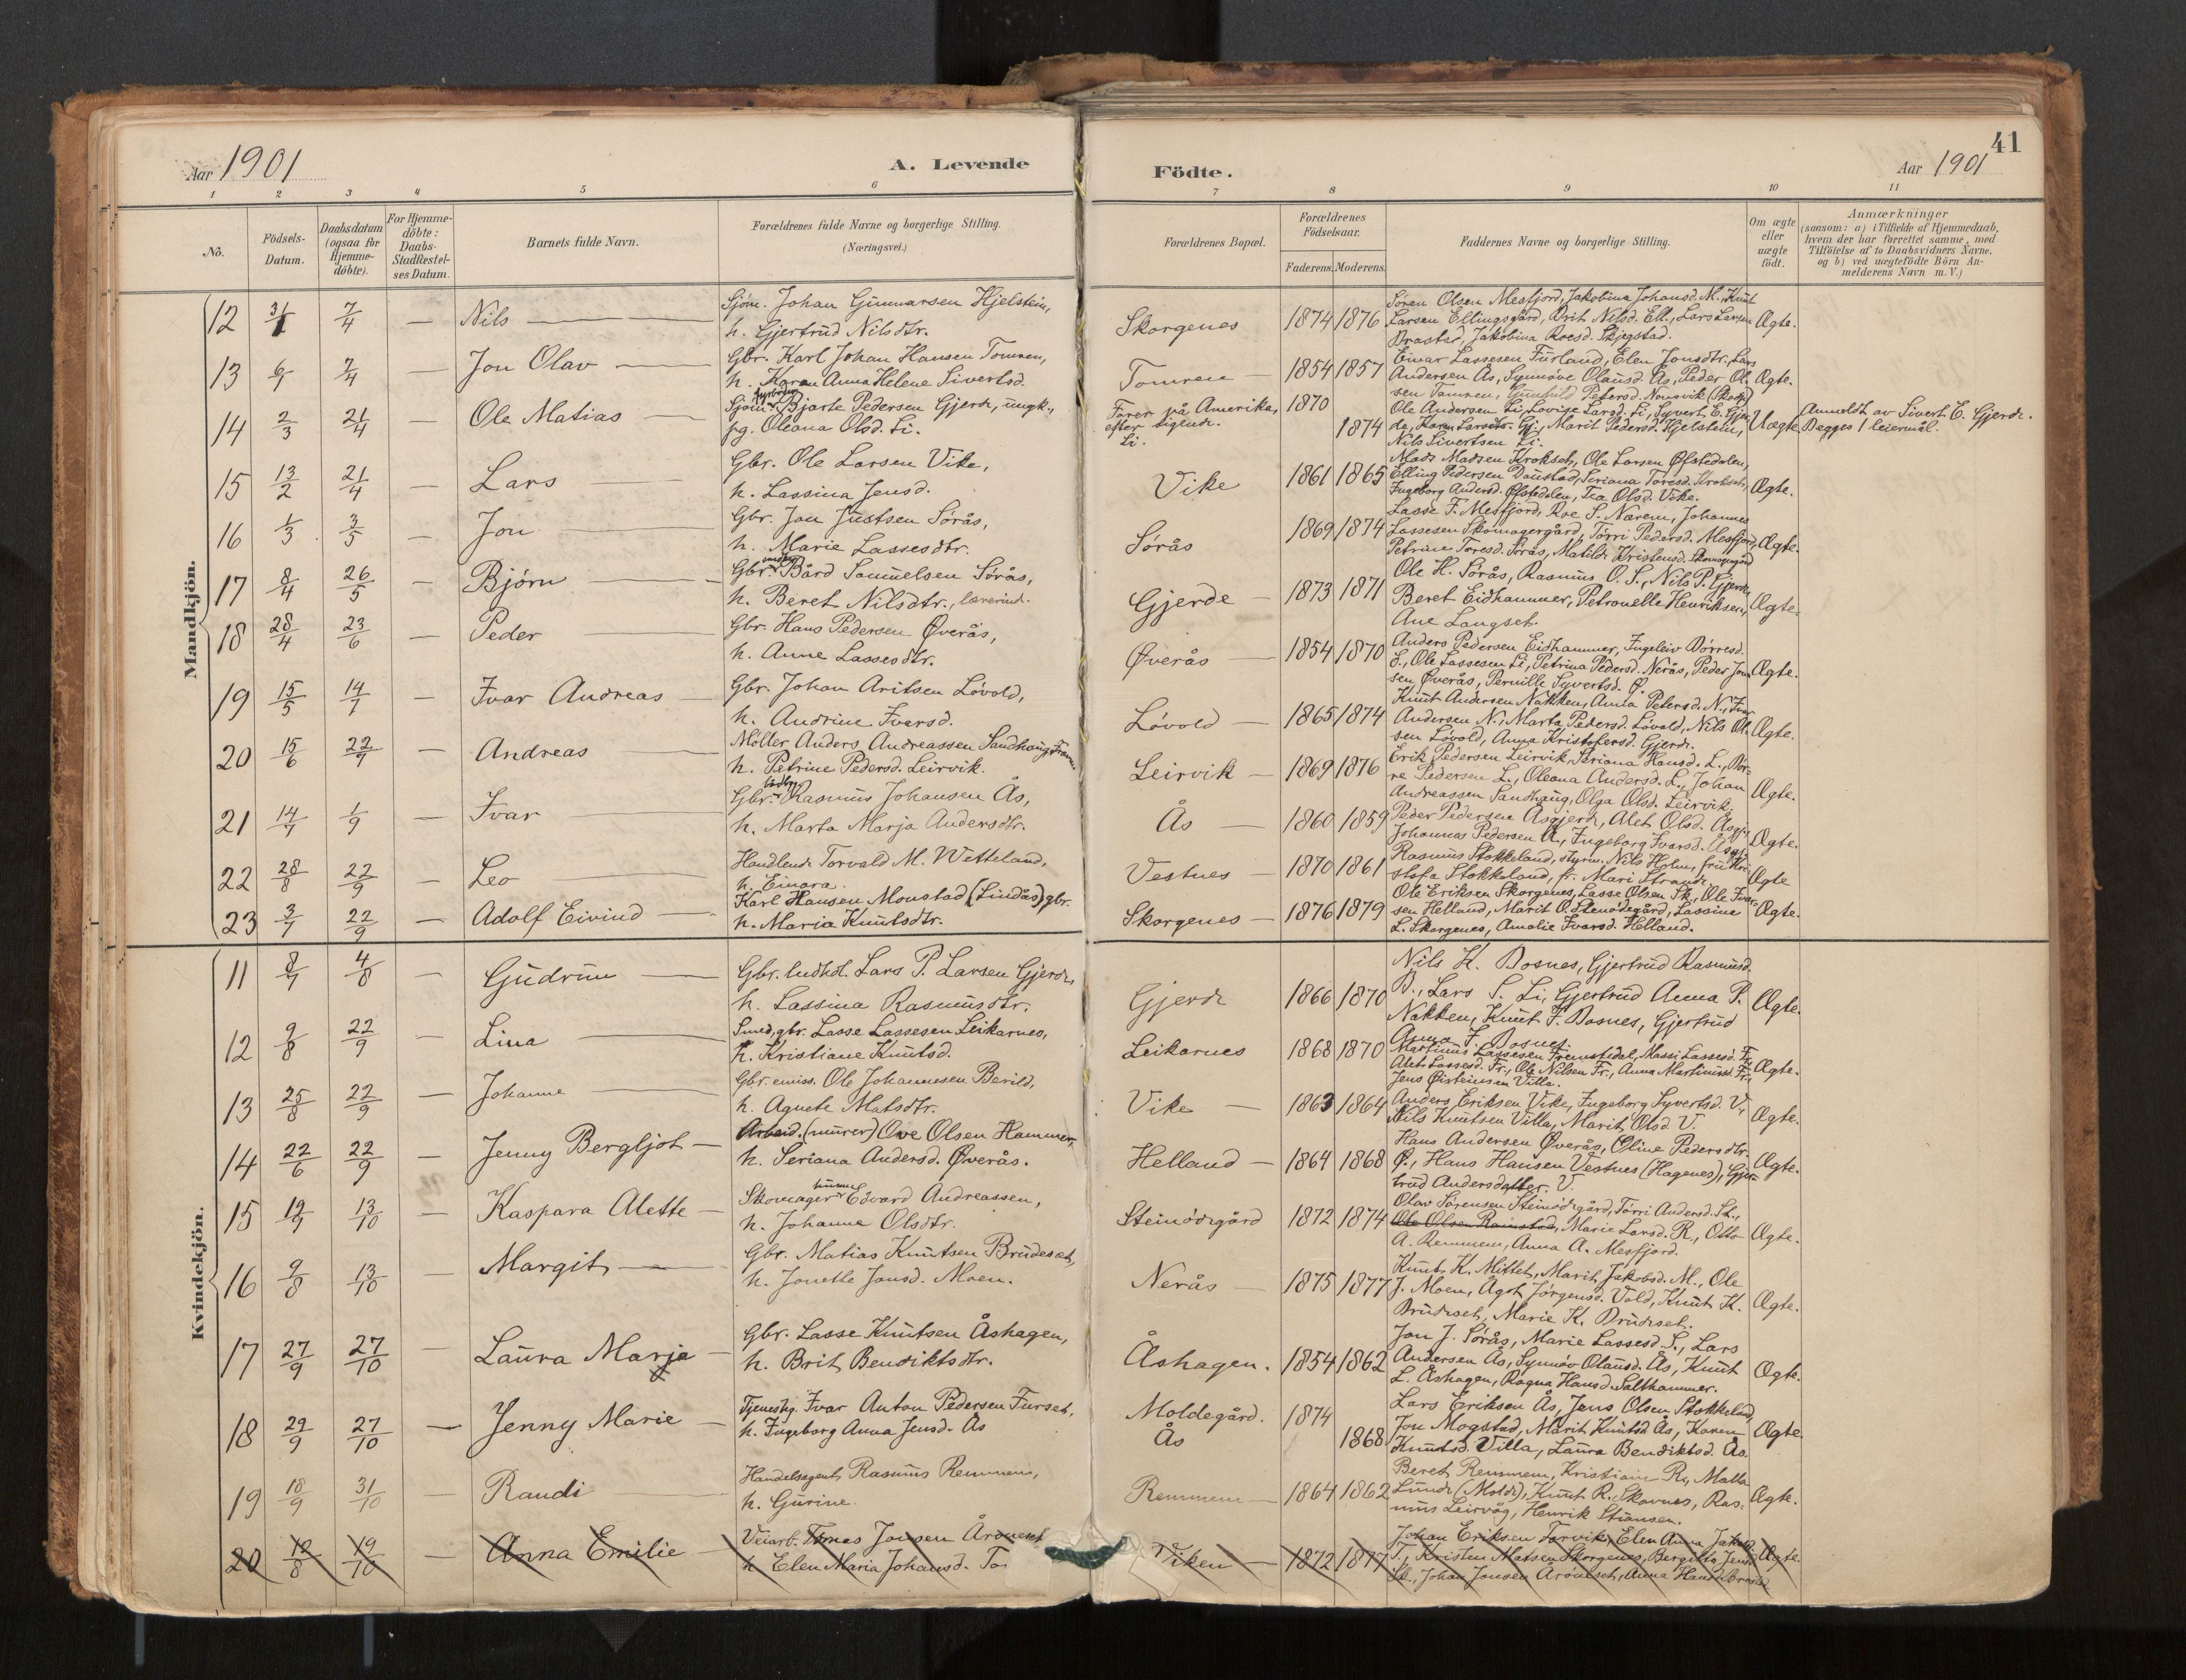 Aar 1901
A. Levende
Födte.
Aar 1901
41
1 2 3 4 5 6 7 8 9 10 11
No.
Födsels-
Datum.
Daabsdatum
(ogsaa for
Hjemme-
döbte).
For Hjemme-
döbte:
Daabs-
Stadfæstel-
ses Datum.
Barnets fulde Navn.
Forældrenes fulde Navne og borgerlige Stilling.
(Næringsvei.)
Forældrenes Bopæl.
Forældrenes
Födselsaar.
Faderens. Moderens.
Faddernes Navne og borgerlige Stilling.
Om ægte
eller
uægte
födt.
Anmærkninger
(saasom: a) i Tilfælde af Hjemmedaab,
hvem der har forrettet samme, med
Tilföielse af to Daabsvidners Navne.
og b) ved uægtefödte Börn An-
melderens Navn m. V.)
Mandkjön.
12 31/1 7/4 — Nils
Sjøm. Johan Gunnarsen Hjelstein,
h. Gjertrud Nilsdtr.
Skorgenes 1874 1876
Søren Olsen Mesfjord, Jakobina Johansd. M., Knut
Larsen Ellingsgård, Brit Nilsd. Ell., Lars Larsen
Brastad, Jakobina Roesd. Skjegstad.
Ægte.
13 6/1 7/4 — Jon Olav
Gbr. Karl Johan Hansen Tomren,
h. Karen Anna Helene Sivertsd.
Tomren 1854 1857
Einar Lassesen Furland, Elen Jonsdtr., Lars
Andersen Ås, Synnøve Olausd. Ås, Peder Ol-
sen Tomren, Gunhild Petersd.
Ægte.
14 2/3 21/4 — Ole Matias
Sjøm. Bjarte Pedersen Gjerde, ungk.,
pg. Oleana Olsd. Li.
Farer på Amerika,
efter sigende.
Li.
1870
1874
Ole Andersen Li, Lovise Larsd. Li, Syvert E. Gjer-
de, Karen Larsdtr. Gj., Marit Pedersd. Hjelstein,
Nils Sivertsen Li.
Uægte
Anmeldt av Sivert E. Gjerde.
Begges 1 leiermål.
15 13/2 21/4 — Lars
Gbr. Ole Larsen Vike,
h. Lassina Jensd.
Vike 1861 1865
Mads Madsen Krokset, Ole Larsen Øfstedalen,
Elling Pedersen Daustad, Seriana Toresd. Krokset,
Ingeborg Andersd. Øfstedalen, Tea Olsd. Vike.
Ægte.
16 1/3 3/5 — Jon
Gbr. Jon Justsen Sørås,
h. Marie Lassesdtr.
Sørås 1869 1874
Lasse F. Mesfjord, Roe S. Nærem, Johannes
Lassesen Skomagergård, Tørri Pedersd. Mesfjord,
Petrine Toresd. Sørås, Matilde Kristensd. Skomagergård
Ægte.
17 8/4 26/5 — Bjørn
Gbr. Bård Samuelsen Sørås,
h. Beret Nilsdtr., lærerind.
Gjerde 1873 1871
Ole H. Sørås, Rasmus O. S., Nils P. Gjerde,
Beret Eidhammer, Petronelle Henriksen,
Ane Langset.
Ægte.
18 28/4 23/6 — Peder
Gbr. Hans Pedersen Øverås,
h. Anne Lassesdtr.
Øverås 1854 1870
Anders Pedersen Eidhammer, Ingeleiv Børresd.
E., Ole Lassesen Li, Petrina Pedersd. Nerås, Peder Jon-
sen Øverås, Pernille Syvertsd. Ø.
Ægte.
19 15/5 14/7 — Ivar Andreas
Gbr. Johan Aritsen Løvold,
h. Andrine Ivarsd.
Løvold 1865 1874
Knut Andersen Nakken, Anna Petersd. N., Ivar
Andersen N., Marta Pedersd. Løvold, Nils Ol-
sen Løvold, Anna Kristofersd. Gjerde.
Ægte.
20 15/6 22/7 — Andreas
Møller Anders Andreassen Sandhaug,
h. Petrine Pedersd. Leirvik.
Leirvik 1869 1876
Erik Pedersen Leirvik, Seriana Hansd. L., Bør-
re Pedersen L., Oleana Andersd. L., Johan
Andreassen Sandhaug, Olga Olsd. Leirvik.
Ægte.
21 14/7 1/9 — Ivar
Gbr. Rasmus Johansen Ås,
h. Marta Marja Andersdtr.
Ås 1860 1859
Peder Pedersen Åsgjerde, Alet Olsd. Åsgj.,
Johannes Pedersen Å., Ingeborg Ivarsd. Åsgj.
Ægte.
22 28/8 22/9 — Leo
Handlende Torvald M. Wetteland,
h. Einara.
Vestnes 1870 1861
Rasmus Stokkeland, styrm. Nils Holm, fru Kri-
stofa Stokkeland, fr. Mari Strande.
Ægte
23 3/7 22/9 — Adolf Eivind
Karl Hansen Monstad (Lindås) gbr.
h. Maria Knutsdtr.
Skorgenes 1876 1879
Ole Eriksen Skorgenes, Lasse Olsen Sk., Ole Ivar-
sen Helland, Marit O. Stenødegård, Lassine
L. Skorgenes, Amalie Ivarsd. Helland.
Ægte.
Kvindekjön.
11 8/7 4/8 — Gudrun
Gbr. Lars P. Larsen Gjerde,
h. Lassina Rasmusdtr.
Gjerde 1866 1870
Nils K. Bosnes, Gjertrud Rasmusd.
B., Lars S. Li, Gjertrud Anna P.
Nakken, Knut F. Bosnes, Gjertrud
Anna F. Bosnes.
Ægte.
12 9/8 22/9 — Lina
Smed, gbr. Lasse Lassesen Leikarnes,
h. Kristiane Knutsd.
Leikarnes 1868 1870
Martinus Lassesen Fremstedal, Massi Lassesd. Fr.,
Alet Lassesd. Fr., Ole Nilsen Fr., Anna Martinusd. Fr.,
Jens Øisteinsen Villa.
Ægte.
13 25/8 22/9 — Johanne
Gbr. emiss. Ole Johannesen Berild,
h. Agnete Matsdtr.
Vike 1863 1864
Anders Eriksen Vike, Ingeborg Syvertsd. V.,
Nils Knutsen Villa, Marit Olsd. V.
Ægte.
14 22/6 22/9 — Jenny Bergljot
Arbeid. (murer) Ove Olsen Hammer,
h. Seriana Andersd. Øverås.
Helland 1864 1868
Hans Andersen Øverås, Oline Pedersdtr.
Ø., Hans Hansen Vestnes (Hagenes), Gjer-
trud Andersdatter. V.
Ægte.
15 12/7 13/10 — Kaspara Alette
Skomager Edvard Andreassen,
h. Johanne Olsdtr.
Steinødegård 1872 1874
Olav Sørensen Steinødegård, Tørri Andersd. St.,
Ole Olsen Ramstad, Marie Larsd. R., Otto
A. Remmem, Anna A. Mesfjord.
Ægte.
16 9/8 13/10 — Margit
Gbr. Matias Knutsen Brudeset,
h. Jonette Jonsd. Moen.
Nerås 1875 1877
Knut K. Mittet, Marit Jakobsd. M., Ole
J. Moen, Ågot Jørgensd. Vold, Knut K.
Brudeset, Marie K. Brudeset.
Ægte.
17 27/9 27/10 — Laura Marja
Gbr. Lasse Knutsen Åshagen,
h. Brit Bendiktsdtr.
Åshagen. 1854 1862
Jon J. Sørås, Marie Lassesd. S., Lars
Andersen Ås, Synnøv Olausd. Ås, Knut
L. Åshagen, Ragna Hansd. Salthammer.
Ægte.
18 29/9 27/10 — Jenny Marie
Tjenestg. Ivar Anton Pedersen Furset,
h. Ingeborg Anna Jensd. Ås
Moldegård.
Ås
1874
1868
Lars Eriksen Ås, Jens Olsen Stokkeland,
Jon Mogstad, Marit Knutsd. Ås, Karen
Knutsd. Villa, Laura Bendiktsd. Ås.
Ægte.
19 18/9 31/10 — Randi
Handelsagent Rasmus Remmem,
h. Gurine.
Remmem 1864 1862
Beret Remmem, Kristian R., Malla
Lunde (Molde), Knut R. Skavnes, Ras-
mus Leirvåg, Henrik Stiansen.
Ægte.
20 12/8 19/10 — Anna Emilie
Veiarb. Tomas Jonsen Årøneset
h. Elen Maria Johansd. To
Viken 1872 1877
Johan Eriksen Torvik, Elen Anna
T., Kristen Matsen Skorgenes, Bergitta Jensd.
Sk., Johan Jonsen Årøneset, Anna
Ægte.